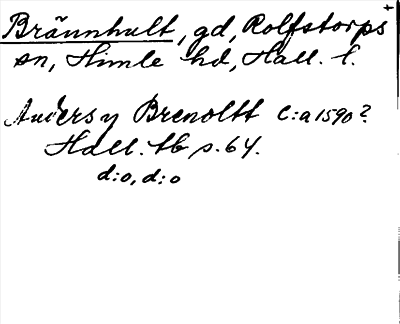 Brännhult, gd, Rolfstorps
sn, Himle hd, Hall. l.
Anders y Brenoltt C:a 1590?
Hall. tb s. 64.
d:o, d:o